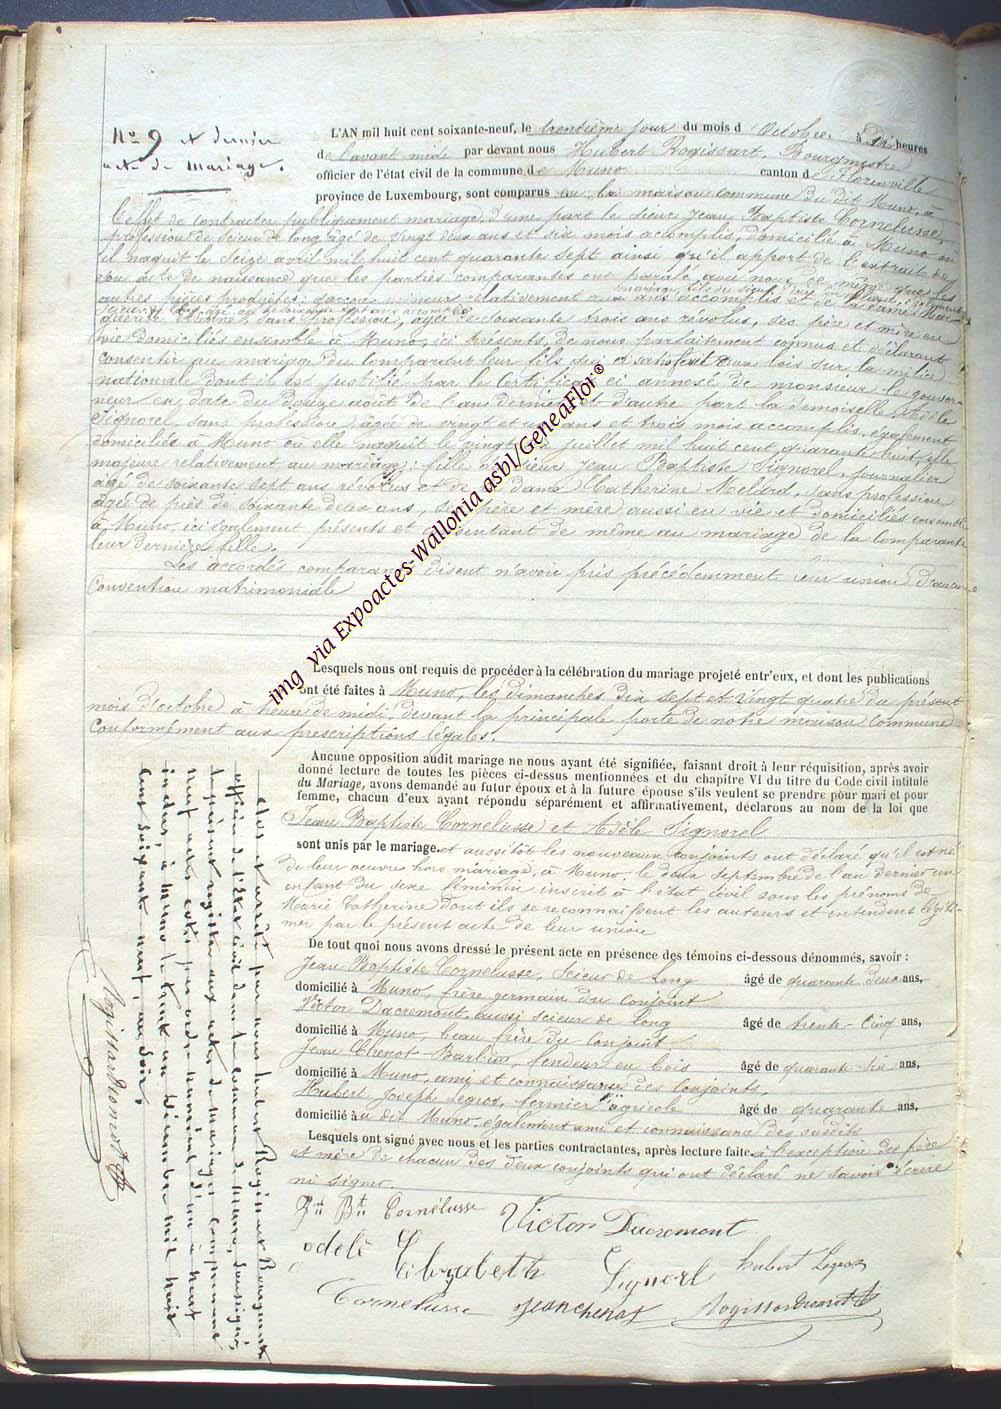 No 9 et dernier
acte de mariage.
L'AN mil huit cent soixante-neuf, le trentième jour du mois d'Octobre, à Dix heures
de l'avant midi par devant nous Hubert Rogissart, Bourgmestre
officier de l'état civil de la commune de Muno canton de Florenville
province de Luxembourg, sont comparus en la maison commune du dit Muno, à
l'effet de contracter publiquement mariage, d'une part le sieur Jean Baptiste Cornelusse,
profession de scieur de long âgé de vingt deux ans et six mois accomplis, domicilié à Muno où
il naquit le seize avril mil huit cent quarante sept ainsi qu'il apport de l'extrait de
son acte de naissance que les parties comparantes ont parafé avec nous de même que les
autres pièces produites: garçon mineur relativement au
mariage, fils du sieur
scieur de long, âgé de soixante sept ans accomplis et de la dame Mar-
guerite Thomé, sans profession, agée de soixante trois ans révolus, ses père et mère en
vie domiciliés ensemble à Muno, ici présents, de nous parfaitement connus et déclarant
consentir au mariage du comparant leur fils qui a satisfait aux lois sur la milice
nationale dont il est justifié par le Certificat ci annexé de monsieur le gouver-
neur en date du Douze août de l'an dernier et d'autre part la demoiselle Adèle
Signorel, sans profession, âgée de vingt et un ans et trois mois accomplis, également
domiciliée à Muno où elle naquit le vingt juillet mil huit cent quarante huit,
majeure relativement au mariage: fille du sieur Jean Baptiste Signorel, journalier
agé de soixante sept ans révolus et de la dame Catherine Meldard, sans profession
agée de près de soixante deux ans, ses père et mère aussi en vie et domiciliés ensemble
à Muno, ici également présents et consentant de même au mariage de la Comparante
leur dernière fille.
Les accordés comparants disent n'avoir pris précédemment leur union d'aucune
Convention matrimoniale
Lesquels nous ont requis de procéder à la célébration du mariage projeté entr'eux, et dont les publications
ont été faites à Muno, les dimanches dix sept et vingt quatre du présent
mois d'octobre à heure de midi, devant la principale porte de notre maison Commune
Conformément aux prescriptions légales.
Aucune opposition audit mariage ne nous ayant été signifiée, faisant droit à leur réquisition, après avoir
donné lecture de toutes les pièces ci-dessus mentionnées et du chapitre VI du titre du Code civil intitulé
du Mariage, avons demandé au futur époux et à la future épouse s'ils veulent se prendre pour mari et pour
femme, chacun d'eux ayant répondu séparément et affirmativement, déclarons au nom de la loi que
Jean Baptiste Cornelusse et Adèle Signorel
sont unis par le mariage. et aussitôt les nouveaux conjoints ont déclaré qu'il est né
de leur oeuvre hors mariage, à Muno, le deux septembre de l'an dernier un
enfant du sexe féminin inscrit à l'état civil sous les prénoms de
Marie Catherine dont ils se reconnaissent les auteurs et entendent légiti-
mer par le présent acte de leur union
De tout quoi nous avons dressé le présent acte en présence des témoins ci-dessous dénommés, savoir :
Jean Baptiste Cornelusse, scieur de Long âgé de quarante deux ans,
domicilié à Muno, frère germain du Conjoint
Victor Dacremont, aussi scieur de long âgé de trente-Cinq ans,
domicilié à Muno, beau frère du Conjoint
Jean Chenot-Barbier, fendeur en bois âgé de quarante six ans,
domicilié à Muno, ami et connaissance des Conjoints,
Hubert Joseph Legros, fermier agricole âgé de quarante ans,
domicilié à u dit Muno, également ami et connaissance des susdits
Lesquels ont signé avec nous et les parties contractantes, après lecture faite. à l'exception des père
et mère de chacun des deux conjoints qui ont déclaré ne savoir écrire
ni signer.
Jn Bte Cornélusse Victor Ducremont
odelè Elizabeth Signorl hubert Legros
Cornelusse Jean chenot Rogissart
Clos et arrêté par nous hubert Rogissart Bourgmestre
officier de l'Etat civil de la commune de Muno, soussigné,
le présent registre aux actes de mariages comprenant
neuf actes cotés par ordre numérique d'un à neuf
inclus, à Muno le trente un Décembre mil huit
cent soixante neuf, au soir.
Rogissart
img via Expoactes-Wallonia asbl/GeneaFlor®